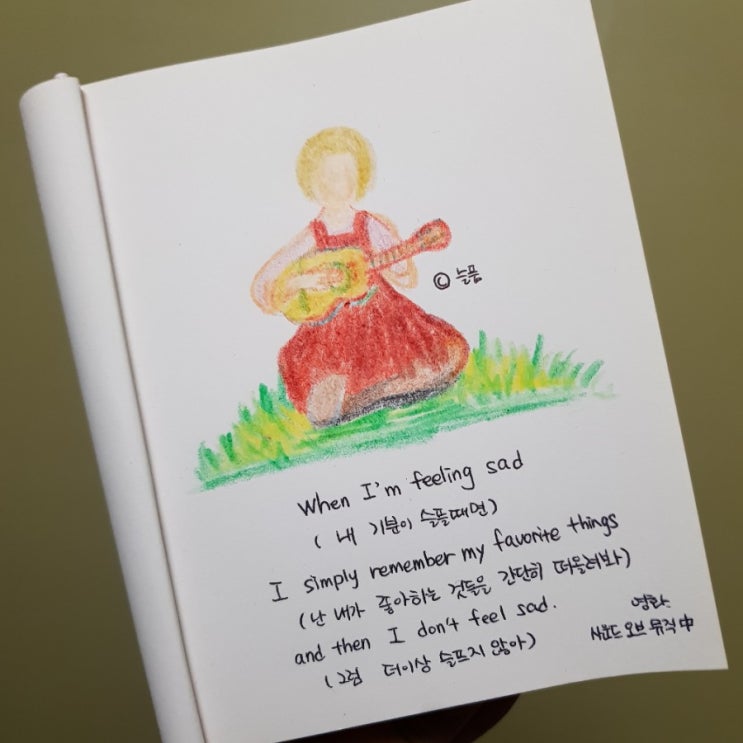 © 늘품
When I'm feeling sad
( 내 기분이 슬플때면 )
I simply remember my favorite things
( 난 내가 좋아하는 것들을 간단히 떠올려봐 )
and then I don't feel sad.
( 그럼 더이상 슬프지 않아 )
영화
사운드 오브 뮤직 中